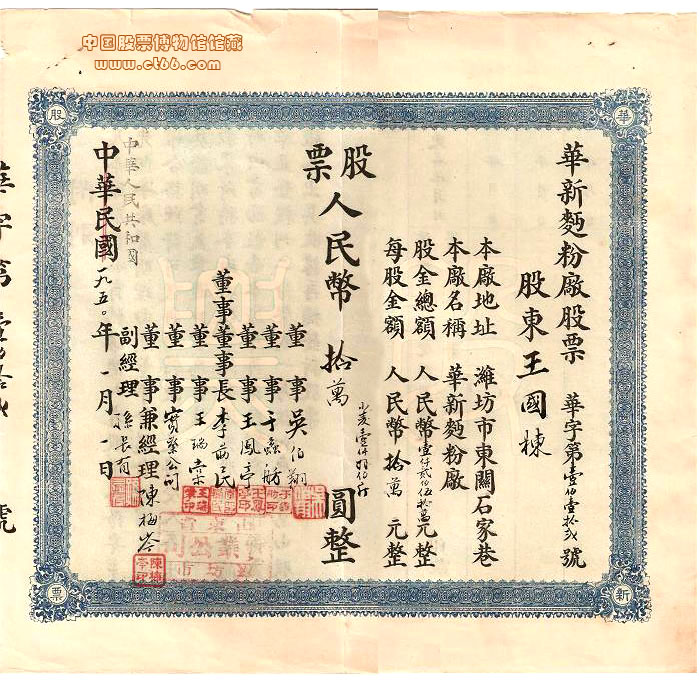 中国股票博物馆馆藏
www.ct66.com
華新麵粉廠股票
華字第壹佰壹拾弍號
股東王國棟
本廠地址 濰坊市東關石家巷
本廠名稱 華新麵粉廠
股金總額 人民幣壹仟貳佰伍拾萬元整
每股金額 人民幣拾萬元整
股票人民幣拾萬圓整
董事吳伯翔
董事于
董事王鳳亭
董事董事長李
董事王瑞棠
董事
董事兼經理陳梅岑
副經理孫長
中華民國一九五〇年一月一日
中華人民共和國
華字第壹佰壹拾弍號
股
華
票
新